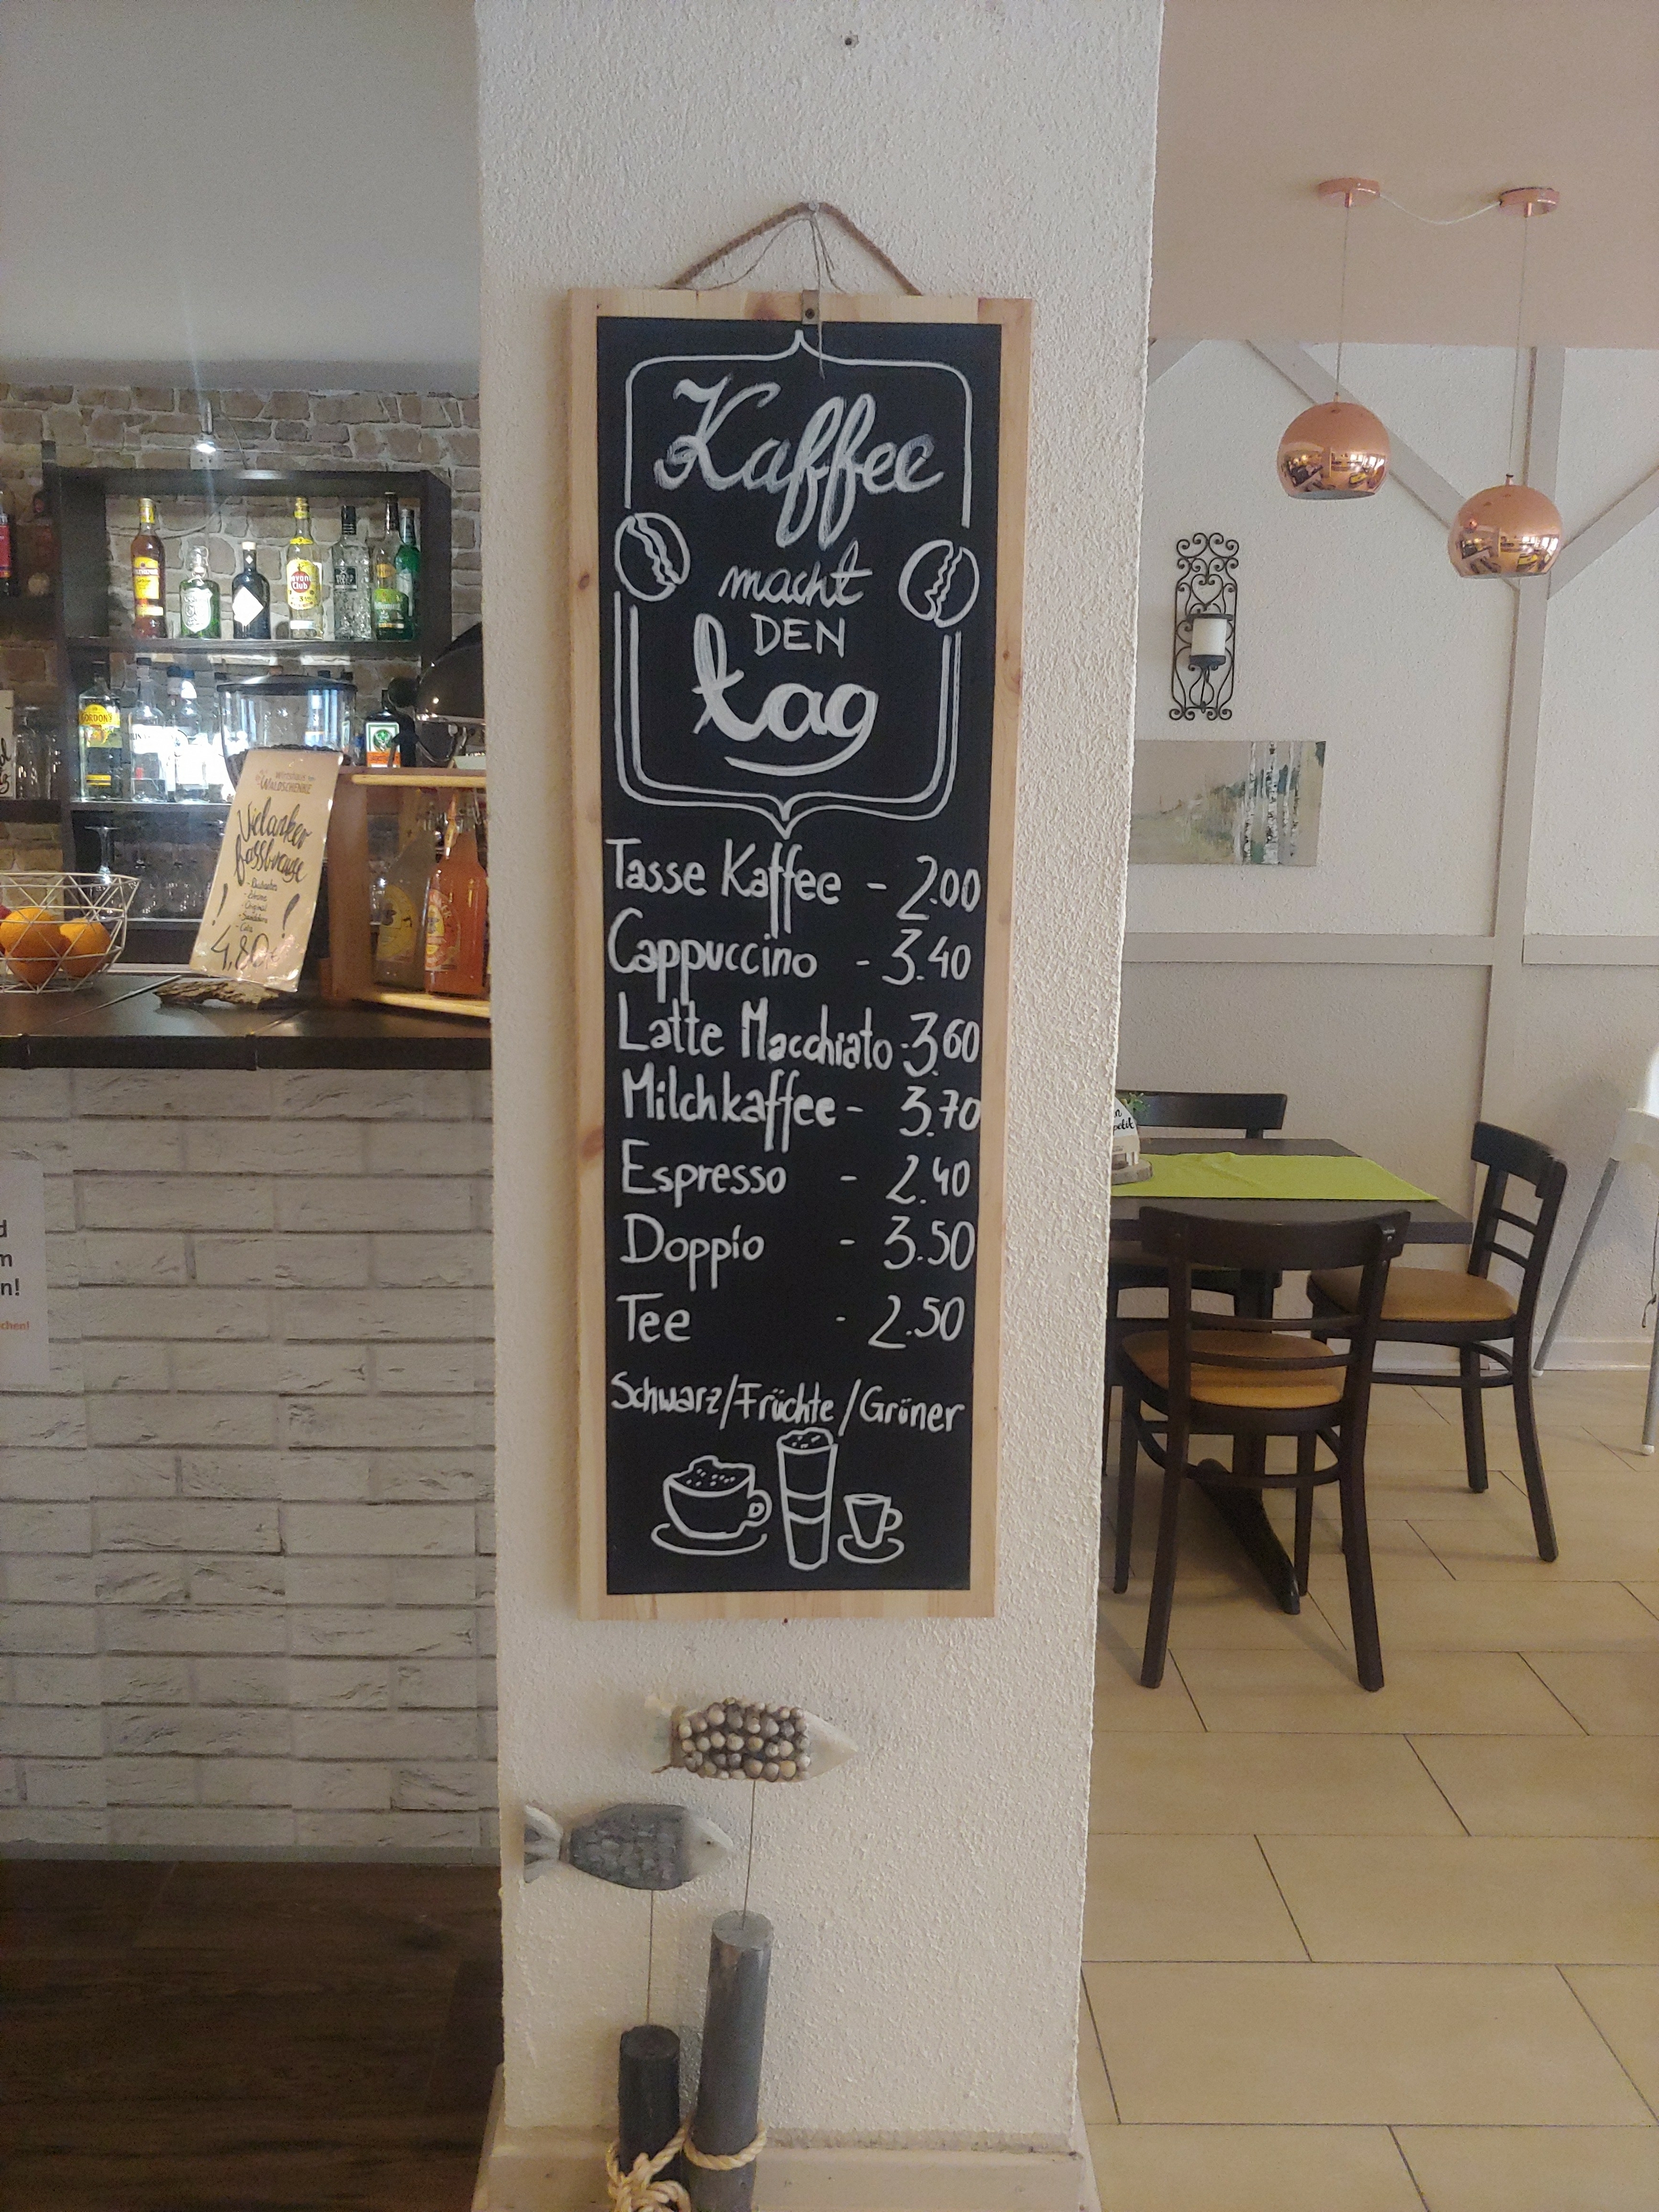 Kaffee
macht
DEN
tag
Tasse Kaffee - 2.00
Cappuccino - 3.40
Latte Macchiato - 3.60
Milchkaffee - 3.70
Espresso - 2.40
Doppio - 3.50
Tee - 2.50
Schwarz/Früchte/Grüner
WALDSCHENKE
Vielanker
fassbrause
- Original
- Cola
! 4,80 !
GORDON'S
Club
d
m
n!
chen!